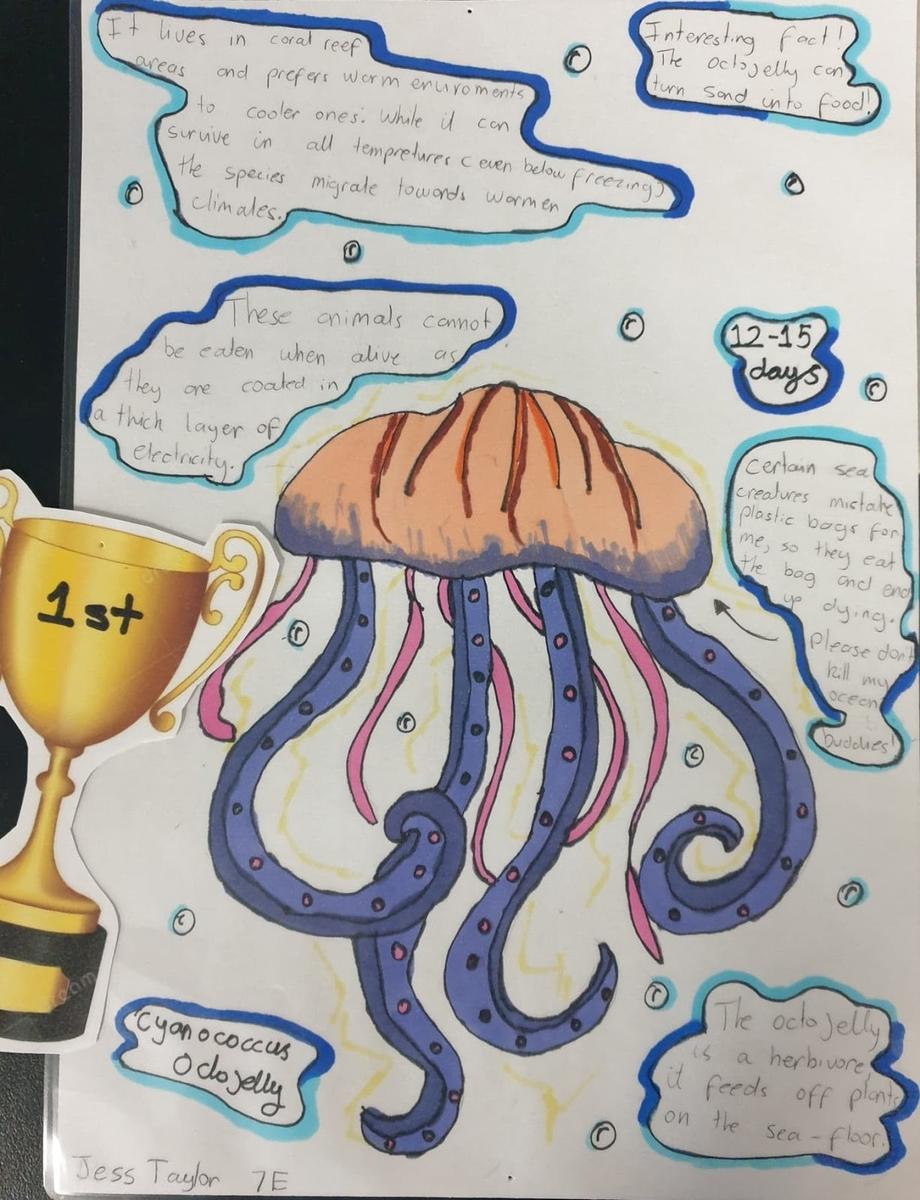 It lives in coral reef
areas and prefers warm enviroments
to cooler ones. While it can
survive in all tempretures (even below freezing)
the species migrate towards warmer
climates.
Interesting fact!
The octojelly can
turn sand into food!
These animals cannot
be eaten when alive as
they are coated in
a thick layer of
electricity.
12-15
days
Certain sea
creatures mistake
plastic bags for
me, so they eat
the bag and end
up dying.
Please don't
kill my
ocean
buddies!
1st
Cyanococcus
Octojelly
The octojelly
is a herbivore,
it feeds off plants
on the sea-floor.
Jess Taylor 7E